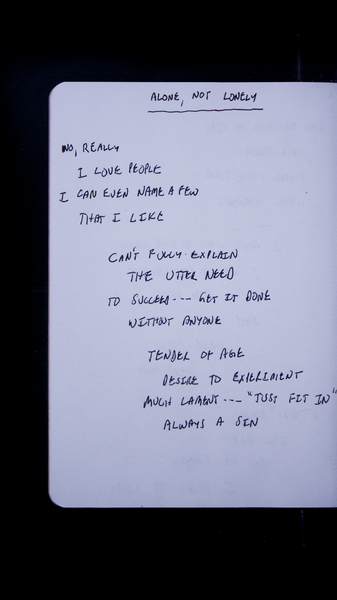 ALONE, NOT LONELY
NO, REALLY
I LOVE PEOPLE
I CAN EVEN NAME A FEW
THAT I LIKE
CAN'T FULLY EXPLAIN
THE UTTER NEED
TO SUCCEED --- GET IT DONE
WITHOUT ANYONE
TENDER OF AGE
DESIRE TO EXPERIMENT
MUCH LAMENT --- "JUST FIT IN"
ALWAYS A SIN